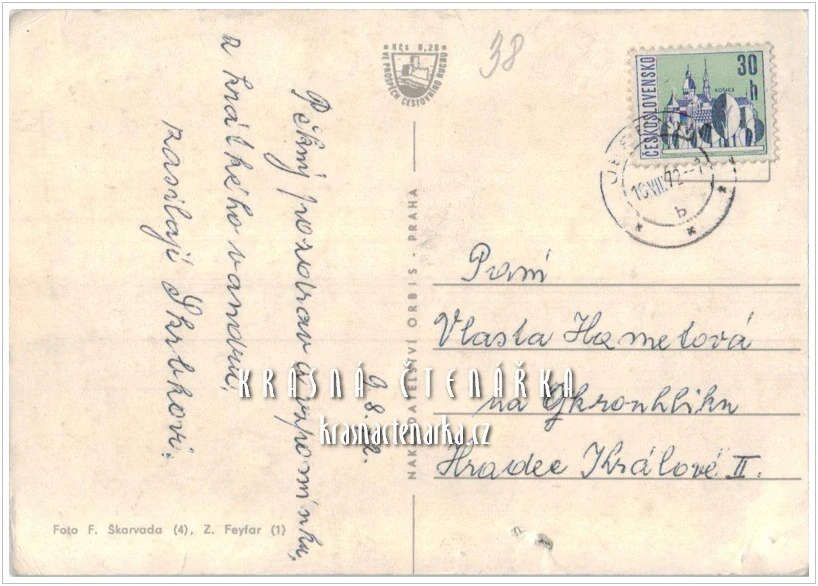 Pěkný pozdrav a vzpomínku,
z krátkého vandru,
zasílají Skrbkovi.
9. 8. 72.
Kčs 0,20
VE PROSPĚCH CESTOVNÍHO RUCHU
38
ČESKOSLOVENSKO
30 h
KOŠICE
10.VIII.72
b
NAKLADATELSTVÍ ORBIS - PRAHA
Paní
Vlasta Hametová
na Okrouhlíku
Hradec Králové II.
KRÁSNÁ ČTENÁŘKA
krasnactenarka.cz
Foto F. Škarvada (4), Z. Feyfar (1)